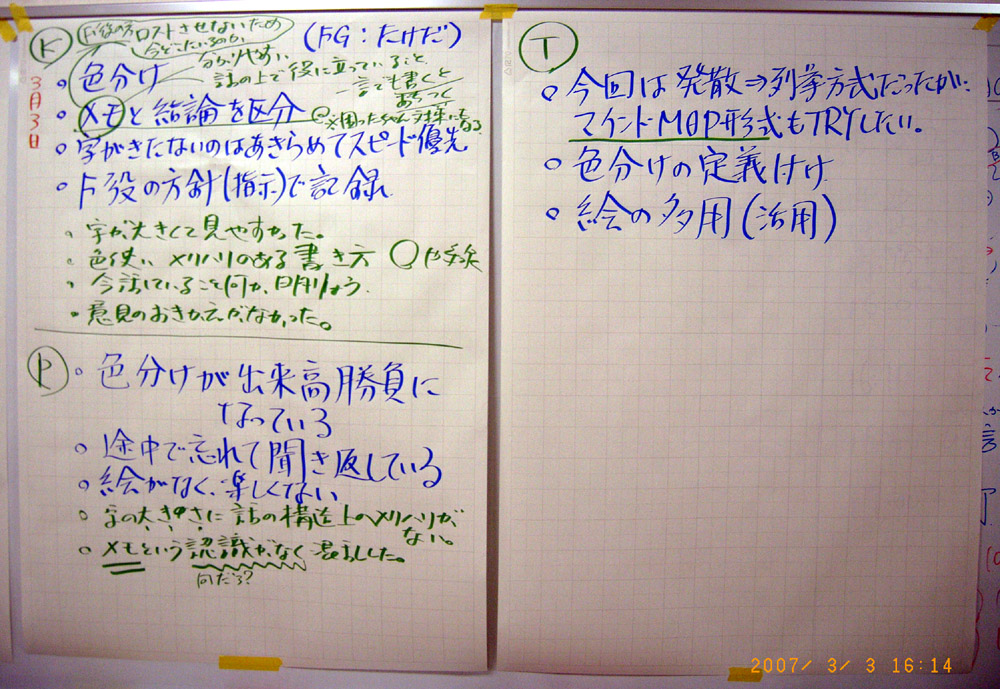 K
ロストさせないため
(FG:たけだ)
3月3日
色分け
分かりやすい
話の上で役に立っていること
一言でも書くと
おちつく
メモと結論を区分
字がきたないのはあきらめてスピード優先
F役の方針(指示)で記録
字が大きくて見やすかった。
色使い メリハリのある書き方 〇や線
今話していること何か、明りょう。
意見のおきかえがなかった。
P
色分けが出来高勝負に
なっている
途中で忘れて聞き返している
絵がなく、楽しくない
字の大きさに話の構造上のメリハリが
ない。
メモという認識がなく混乱した。
何だろ?
T
今回は発散⇒列挙方式だったが、
マインドMAP形式もTRYしたい。
色分けの定義付け
絵の多用(活用)
2007/ 3/ 3 16:14